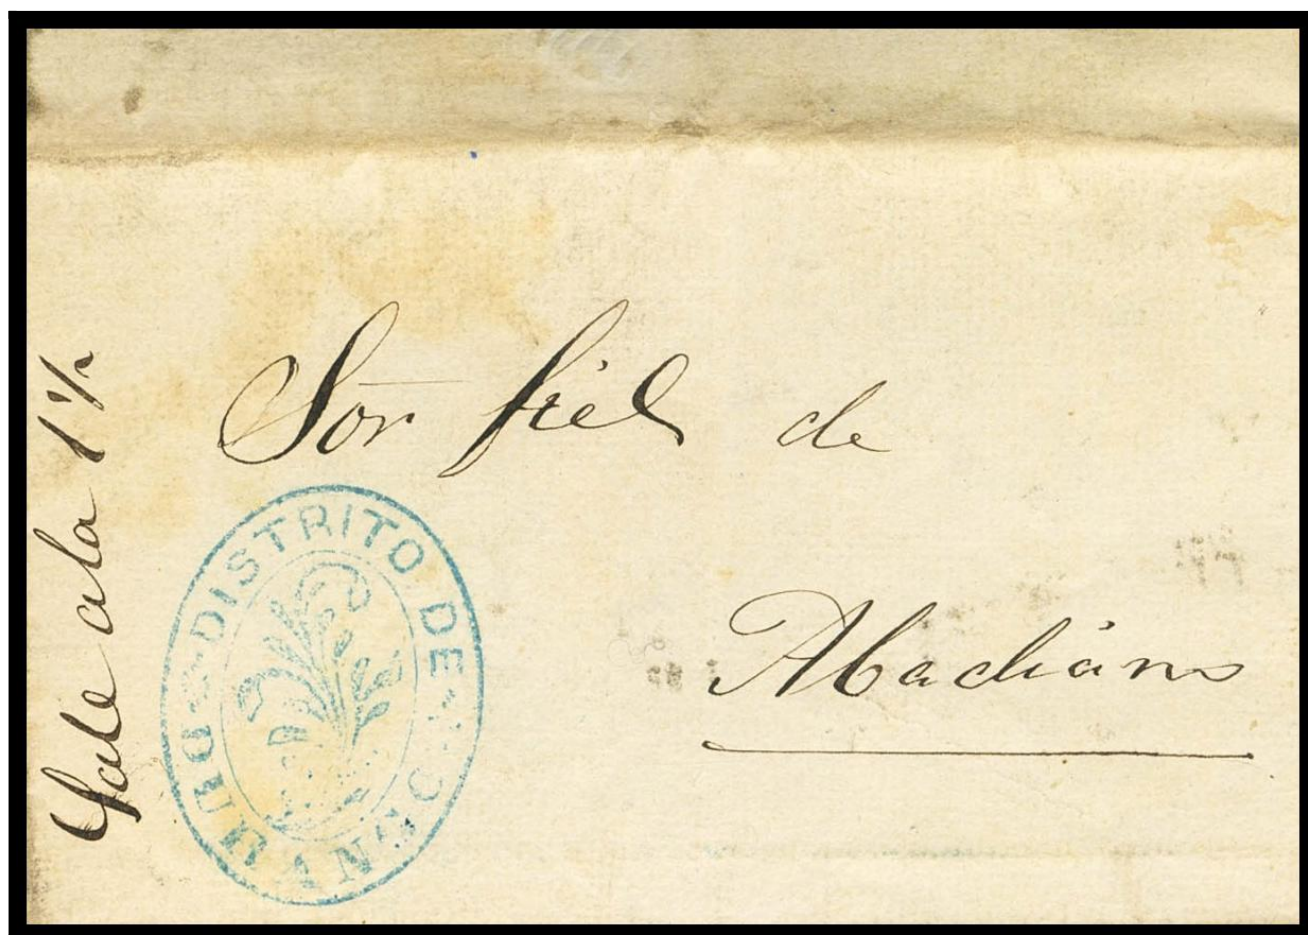 Sale a la 1 1/2
Sōr fiel de
Abadiano
DISTRITO DE DURANGO